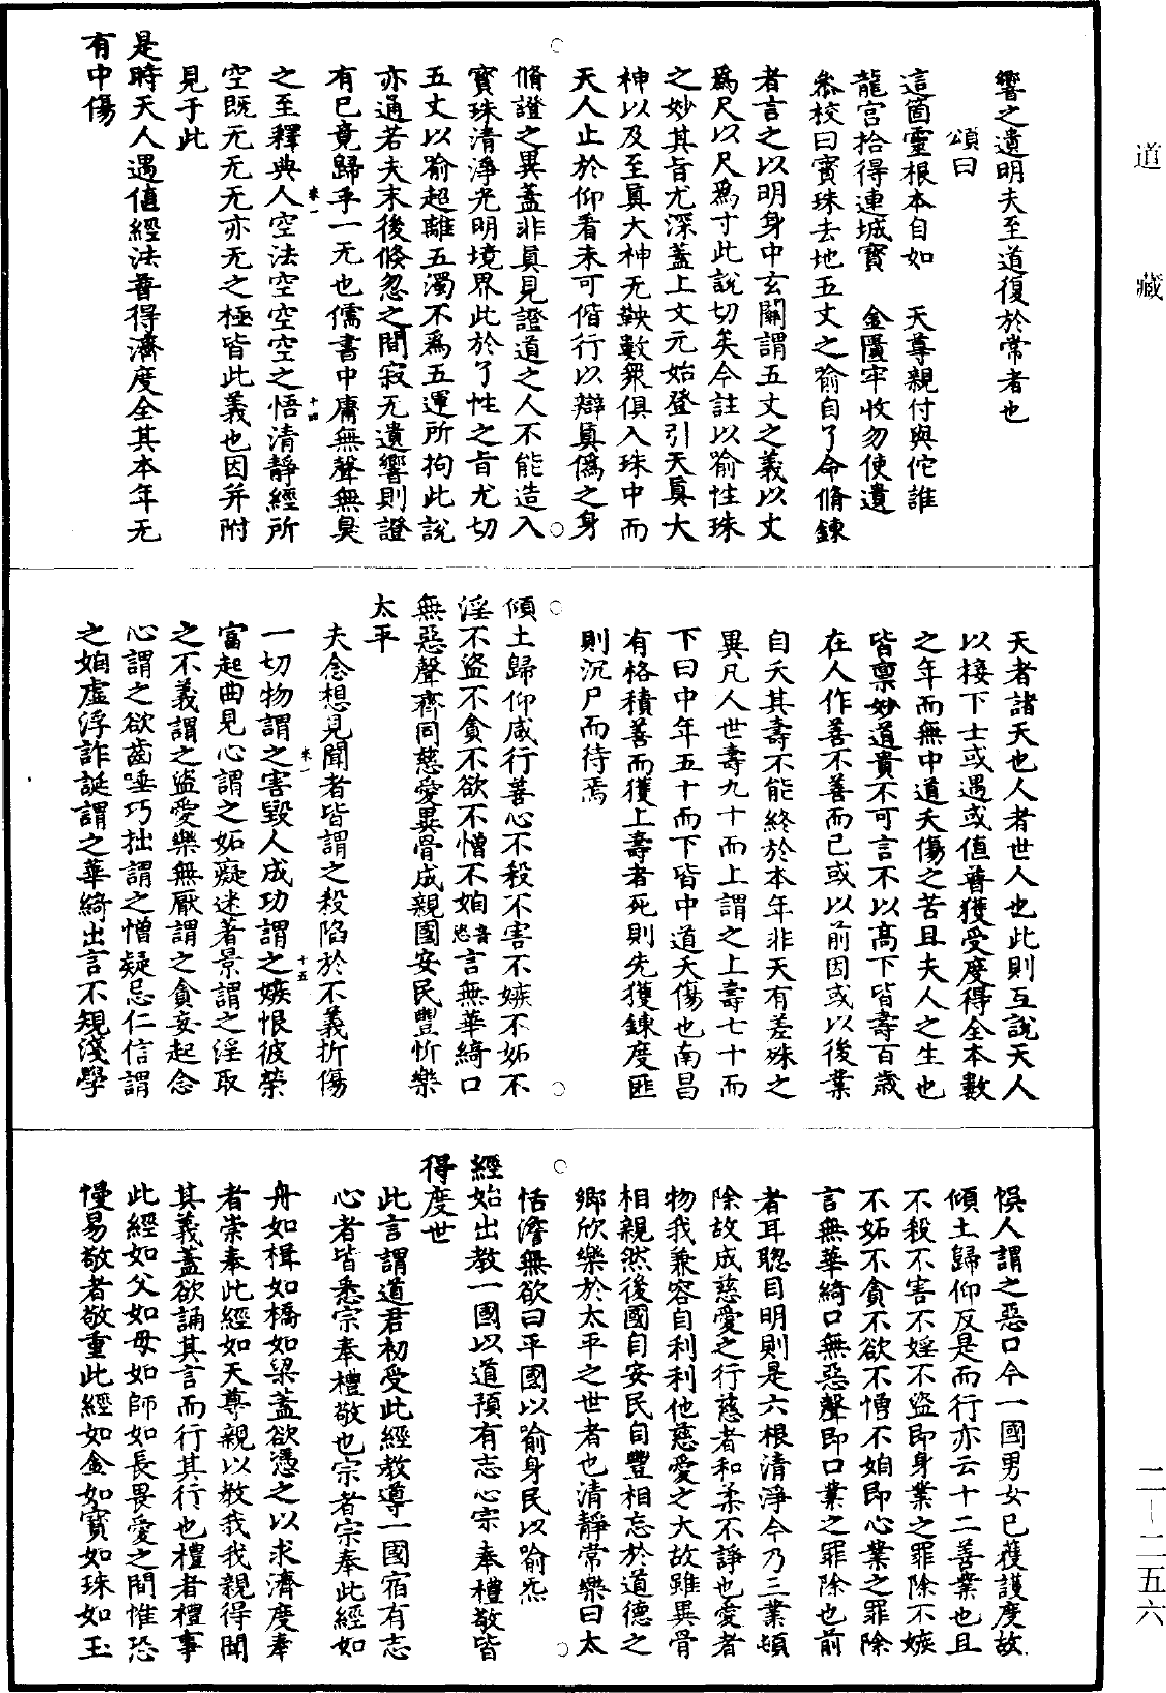 道藏
響之遺明夫至道復於常者也
頌曰
這箇靈根本自如　天尊親付與佗誰
龍宮拾得連城寶　金匱牢收勿使遺
叅校曰寶珠去地五丈之喻自了命脩鍊
者言之以明身中玄關謂五丈之義以丈
爲尺以尺爲寸此說切矣今註以喻性珠
之妙其旨尤深蓋上文元始登引天真大
神以及至真大神无鞅數衆俱入珠中而
天人止於仰看未可偕行以辯真僞之身
脩證之異蓋非真見證道之人不能造入
寶珠清淨光明境界此於了性之旨尤切
五丈以喻超離五濁不爲五運所拘此說
亦通若夫末後倐忽之間寂无遺響則證
有已竟歸乎一无也儒書中庸無聲無臭
來一　十四
之至釋典人空法空空空之悟清靜經所
空既无无无亦无之極皆此義也因并附
見于此
是時天人遇值經法普得濟度全其本年无
有中傷
天者諸天也人者世人也此則互說天人
以接下士或遇或值普獲受度得全本數
之年而無中道夭傷之苦且夫人之生也
皆禀妙道貴不可言不以高下皆壽百歲
在人作善不善而已或以前因或以後業
自夭其壽不能終於本年非天有差殊之
異凡人世壽九十而上謂之上壽七十而
下曰中年五十而下皆中道夭傷也南昌
有格積善而獲上壽者死則先獲鍊度匪
則沉尸而待焉
傾土歸仰咸行善心不殺不害不嫉不妬不
淫不盜不貪不欲不憎不㛍音恣言無華綺口
無惡聲齊同慈愛異骨成親國安民豐忻樂
太平
夫念想見聞者皆謂之殺陷於不義折傷
來一　十五
一切物謂之害毀人成功謂之嫉恨彼榮
富起曲見心謂之妬癡迷著景謂之淫取
之不義謂之盜愛樂無厭謂之貪妄起念
心謂之欲齒唾巧拙謂之憎疑忌仁信謂
之㛍虛浮詐誕謂之華綺出言不規淺學
悞人謂之惡口今一國男女已獲護度故
傾土歸仰反是而行亦云十二善業也且
不殺不害不婬不盜即身業之罪除不嫉
不妬不貪不欲不憎不㛍即心業之罪除
言無華綺口無惡聲即口業之罪除也前
者耳聦目明則是六根清淨今乃三業頓
除故成慈愛之行慈者和柔不諍也愛者
物我兼容自利利他慈愛之大故雖異骨
相親然後國自安民自豐相忘於道德之
鄉欣樂於太平之世者也清靜常樂曰太
恬澹無欲曰平國以喻身民以喻炁
經始出教一國以道預有志心宗奉禮敬皆
得度世
此言謂道君初受此經教導一國宿有志
心者皆悉宗奉禮敬也宗者宗奉此經如
舟如楫如橋如梁蓋欲憑之以求濟度奉
者崇奉此經如天尊親以教我我親得聞
其義蓋欲誦其言而行其行也禮者禮事
此經如父如母如師如長畏愛之間惟恐
慢易敬者敬重此經如金如寶如珠如玉
二—二五六